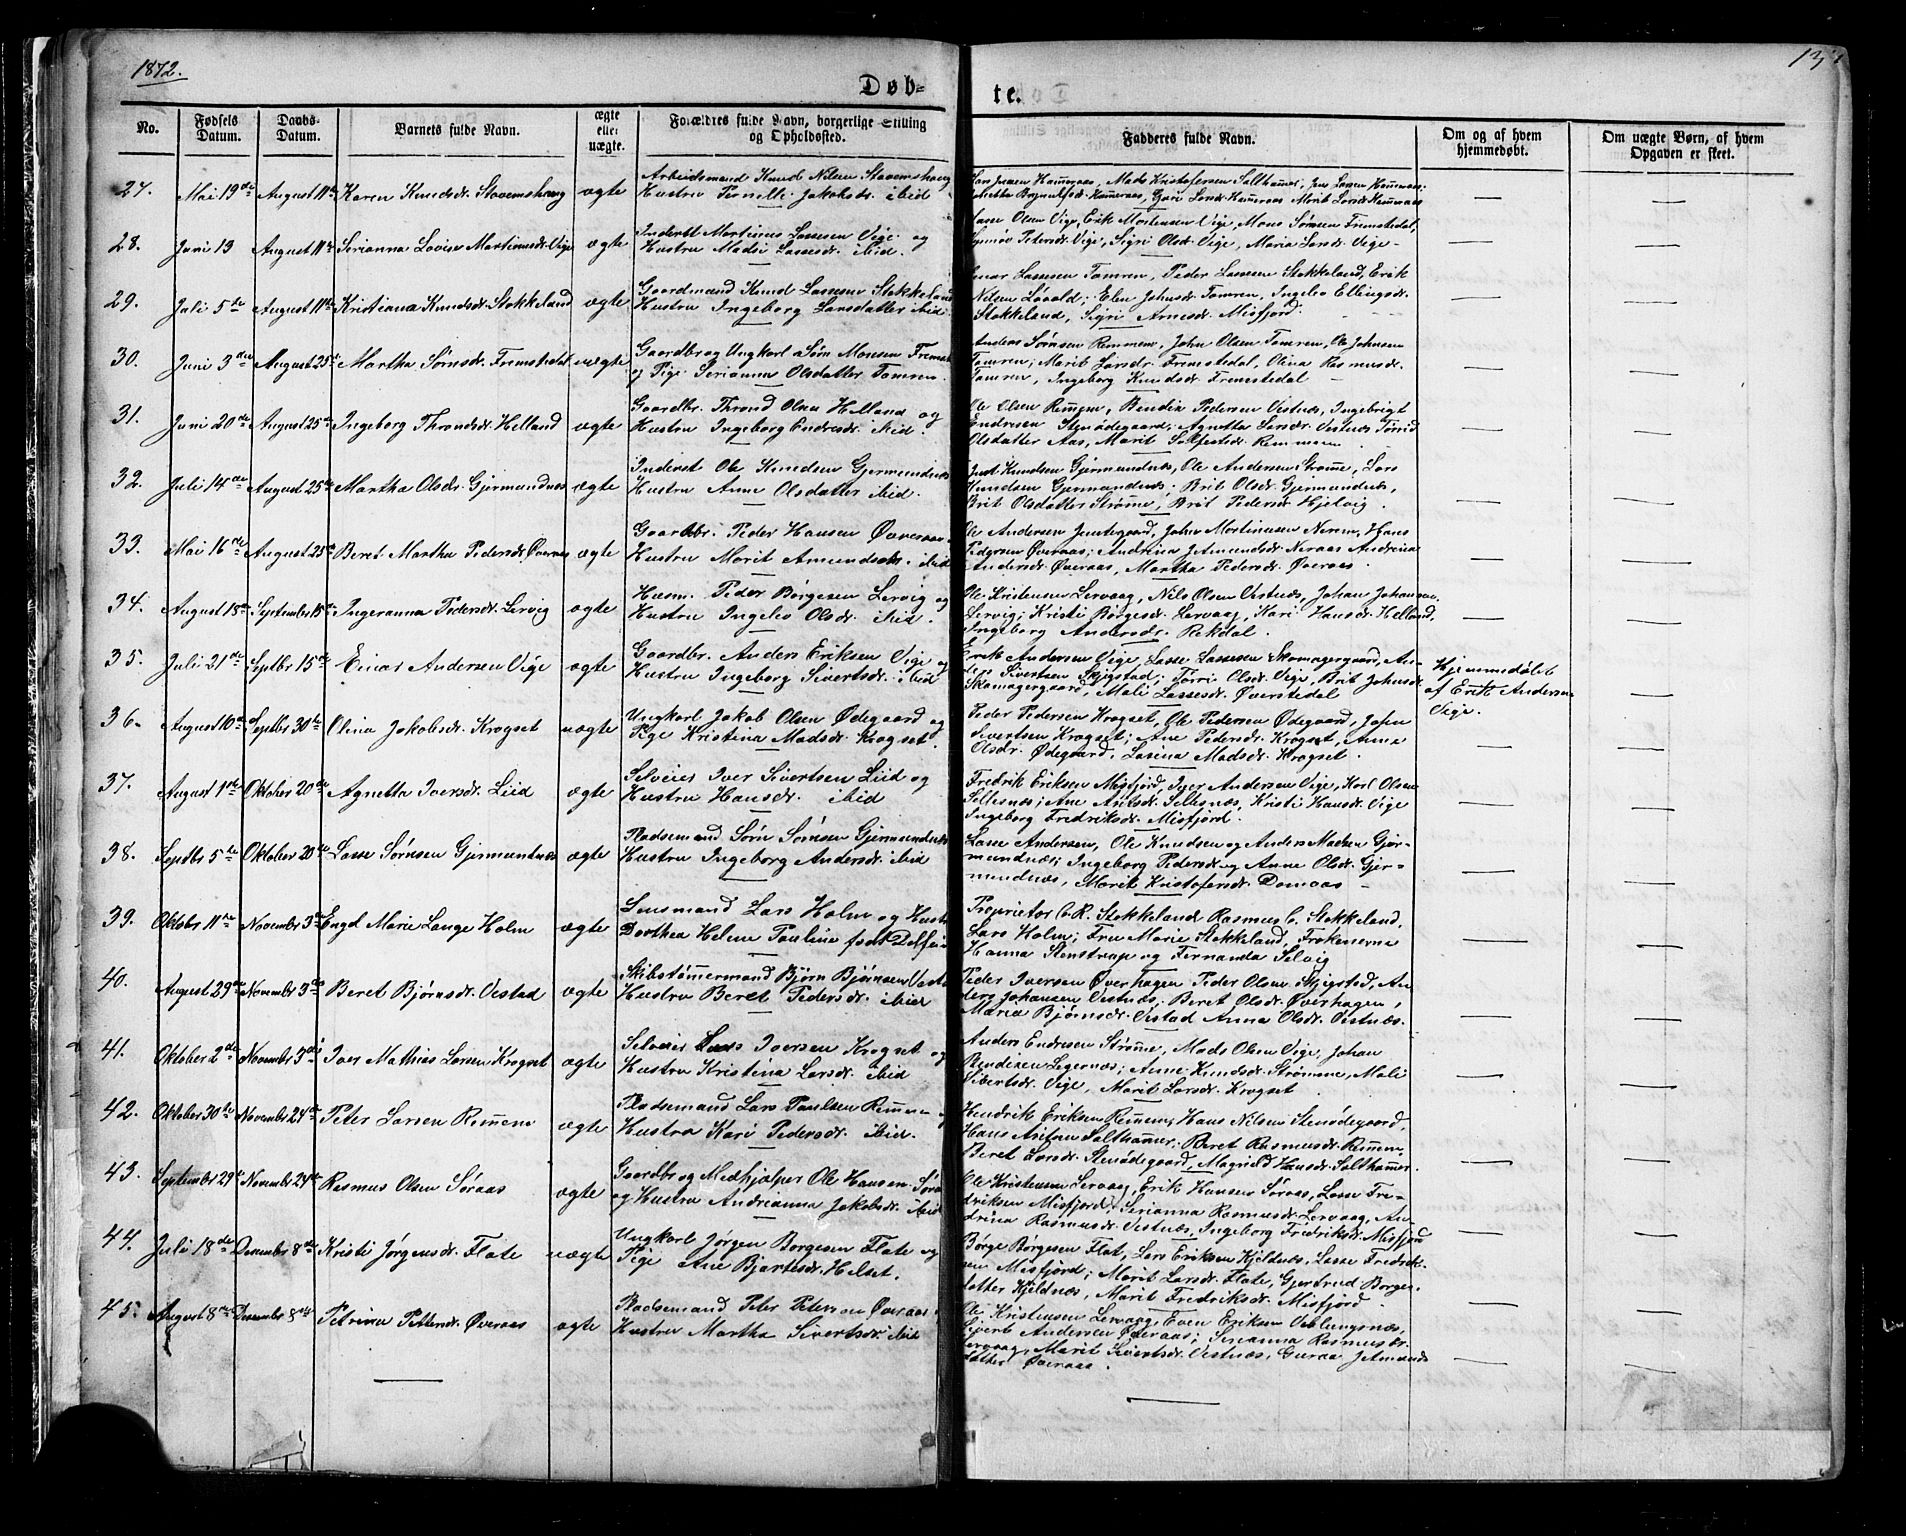 1872.
Døb-
te.
No.
Fødsels Datum.
Daabs-Datum.
Barnets fulde Navn.
ægte eller uægte.
Forældres fulde Navn, borgerlige Stilling og Opholdssted.
Fadderes fulde Navn.
Om og af hvem hjemmedøbt.
Om uægte Børn, af hvem Opgaven er skeet.
27. Mai 19de August 11te Karen Knudsdr. Stavemshaug ægte
Arbeidsmand Knud Nilsen Stavemshaug
Hustru Pernille Jakobsdr. ibid
Lars Jensen Hammeraas, Mads Kristofersen Salthammer, Jens Larsen Hammeraas,
Hammeraas, Guri Larsdr. Hammeraas Marit Larsdr. Hammeraas
28. Juni 13 August 11te Serianna Lovise Martinusdr. Vige ægte
Inderst Martinus Lassesen Vige og
Hustru Madsi Lassesdr. ibid.
Lasse Olsen Vige, Erik Mortensen Vige, Mons Sørnsen Fremstedal,
Synnøv Petersdr. Vige, Sigri Olsdr. Vige, Maria Larsdr. Vige
29. Juli 5te August 11te Kristiana Knudsdr. Stokkeland ægte
Gaardmand Knud Lassesen Stokkeland
Hustru Ingeborg Larsdatter ibid.
Lassesen Tomren, Peder Lassesen Stokkeland, Erik
Nilsen Lovold; Elen Johnsdr. Tomren, Ingebo Ellingsdr.
Stokkeland, Sigri Arnesdr. Misfjord
30. Juni 3die August 25de Martha Sørnsdr. Fremstedal uægte
Gaardbr og Ungkarl Sørn Monsen Fremst
og Pige Serianna Olsdatter Tomren.
Anders Sørnsen Remmem, John Olsen Tomren, Ole Johnsen
Tomren; Marit Larsdr. Fremstedal, Olina Rasmusdr.
Tomren, Ingeborg Knudsdr. Fremstedal
31. Juni 20de August 25de Ingeborg Throndsdr. Helland ægte
Gaardbr. Thrond Olsen Helland og
Hustru Ingeborg Endresdr. ibid.
Ole Olsen Remmem, Bendix Pedersen Vestnæs, Ingebrigt
Endresen Stenødegaard; Agnetha Larsdr. Vestnæs Torrid
Olsdatter Aas, Marit Solfestsdr. Remmem
32. Juli 14de August 25de Martha Olsdr. Gjermundnæs ægte
Inderst Ole Knudsen Gjermundnæs
Hustru Anne Olsdatter ibid.
Just Knudsen Gjermundnæs, Ole Andersen Strømme, Lars
Knudsen Gjermundnæs; Brit Olsdr. Gjermundnæs,
Brit Olsdatter Strømme, Brit Pedersdr. Hjelvig
33. Mai 16de August 25de Beret Martha Pedersdr. Øveraas ægte
Gaardbr. Peder Hansen Øveraas
Hustru Marit Amundsdr. ibid
Ole Andersen Jensegaard, John Mortinusen Nerem, Hans
Pedersen Øveraas; Andrina J. Amundsdr. Neraas Andrina
Andersdr. Øveraas, Martha Pedersdr. Øveraas.
34. August 18de September 15de Ingeranna Pedersdr. Lervig ægte
Husm. Peder Børgesen Lervig og
Hustru Ingebo Olsdr. ibid.
Ole Kristensen Lervaag, Nils Olsen Vestnæs, Johan Johansen
Lervig; Kristi Børgesdr. Lervaag, Kari Hansdr. Helland,
Ingeborg Andersdr. Rekdal.
35. Juli 21de Septbr 15de Einar Andersen Vige ægte
Gaardbr. Anders Eriksen Vige og
Hustru Ingeborg Sivertsdr. ibid
Erik Andersen Vige, Lasse Lassesen Skomagergaard, An-
ders Sivertsen Skjegstad; Torri Olsdr. Vige, Brit Johnsdr.
Skomagergaard, Mali Lassesdr. Øverstedal
Hjemmedøbt
af Erik Andersen
Vige.
36. August 10de Septbr 30te Olina Jakobsdr. Krogset uægte
Ungkarl Jakob Olsen Ødegaard og
Pige Kristina Madsdr. Krogset.
Peder Pedersen Krogset, Ole Pedersen Ødegaard, John
Sivertsen Krogset; Ane Pedersdr. Krogset, Anne
Olsdr. Ødegaard, Lasina Madsdr. Krogset.
37. August 1ste Oktober 20de Agnetta Iversdr. Liid ægte
Selveier Iver Sivertsen Liid og
Hustru Hansdr. ibid
Fredrik Eriksen Misfjord, Iver Andersen Vige, Karl Olsen
Sellesnæs; Ane Antsdr. Sellesnæs, Kristi Hansdr. Vige
Ingeborg Fredriksdr. Misfjord.
38. Septbr 5te Oktober 20de Lasse Sørnsen Gjermundnæs ægte
Pladsemand Sørn Sørnsen Gjermundnæs
Hustru Ingeborg Andersdr. ibid
Lasse Andersen, Ole Knudsen og Anders Madsen Gjer-
mundnæs; Ingeborg Pedersdr. og Anne Olsdr. Gjer-
mundnæs, Marit Kristofersdr. Domaas
39. Oktober 11te November 3de Engel Marie Lange Holm ægte
Lensmand Lars Holm og Hustru
Dorthea Helene Pauline født
Proprietør C. R. Stokkeland Rasmus C. Stokkeland,
Lars Holm; Fru Marie Stokkeland, Frøknerne
Hanna Stenstrup og Fernanda Selvig
40. August 29de November 3de Beret Bjørnsdr. Vestad ægte
Skibstømmermand Bjørn Bjørnsen Vestad
Hustru Beret Pedersdr. ibid
Peder Iversen Øverhagen Peder Olsen Skjegsted, An-
ders Johansen Vestnæs; Beret Olsdr. Øverhagen,
Maria Bjørnsdr. Vestad Anna Olsdr. Vestnæs.
41. Oktober 2de November 3de Iver Mathias Larsen Krogset ægte
Selveier Lars Iversen Krogset og
Hustru Kristina Larsdr. ibid
Anders Endresen Strømme, Mads Olsen Vige, Johan
Bendixen Legernæs; Anne Knudsdr. Strømme, Mali
Sivertsdr. Vige, Marit Larsdr. Krogset
42. Oktober 30te November 24de Peter Larsen Remmem ægte
Pladsemand Lars Paulsen Remmem
Hustru Kari Pedersdr. ibid.
Hendrik Eriksen Remmem, Hans Nilsen Stenødegaard,
Hans Salthammer; Beret Rasmusdr. Remmem
Beret Larsdr. Stenødegaard, Magnild Hansdr. Salthammer.
43. September 29de November 24de Rasmus Olsen Søraas ægte
Gaardbr og Medhjælper Ole Hansen Søraas
og Hustru Andrianna Jakobsdr. ibid
Ole Kristensen Lervaag, Erik Hansen Søraas, Lasse Fre-
driksen Misfjord; Serianna Rasmusdr. Lervaag, An-
drina Rasmusdr. Vestnæs, Ingeborg Fredriksdr. Misfjord
44. Juli 18de Desember 8de Kristi Jørgensdr. Flate uægte
Ungkarl Jørgen Børgesen Flate og
Pige Ane Bjartesdr. Helset.
Børge Børgesen Flat, Lars Eriksen Kjeldnæs, Lasse Fredrik-
sen Misfjord; Marit Larsdr. Flate, Gjertrud Børges-
datter Kjeldnæs, Marit Fredriksdr. Misfjord
45. August 8de Desember 8de Petrina Pettersdr. Øveraas ægte
Pladsemand Peter Petersen Øveraas
Hustru Martha Sivertsdr. ibid
Ole Kristensen Lervaag, Even Eriksen Veblungsnæs,
Sivert Andersen Øveraas; Serianna Rasmusdr.
Lervaag, Marit Sivertsdr. Vestnæs, Guraa J. Amunds
datter Øveraas.